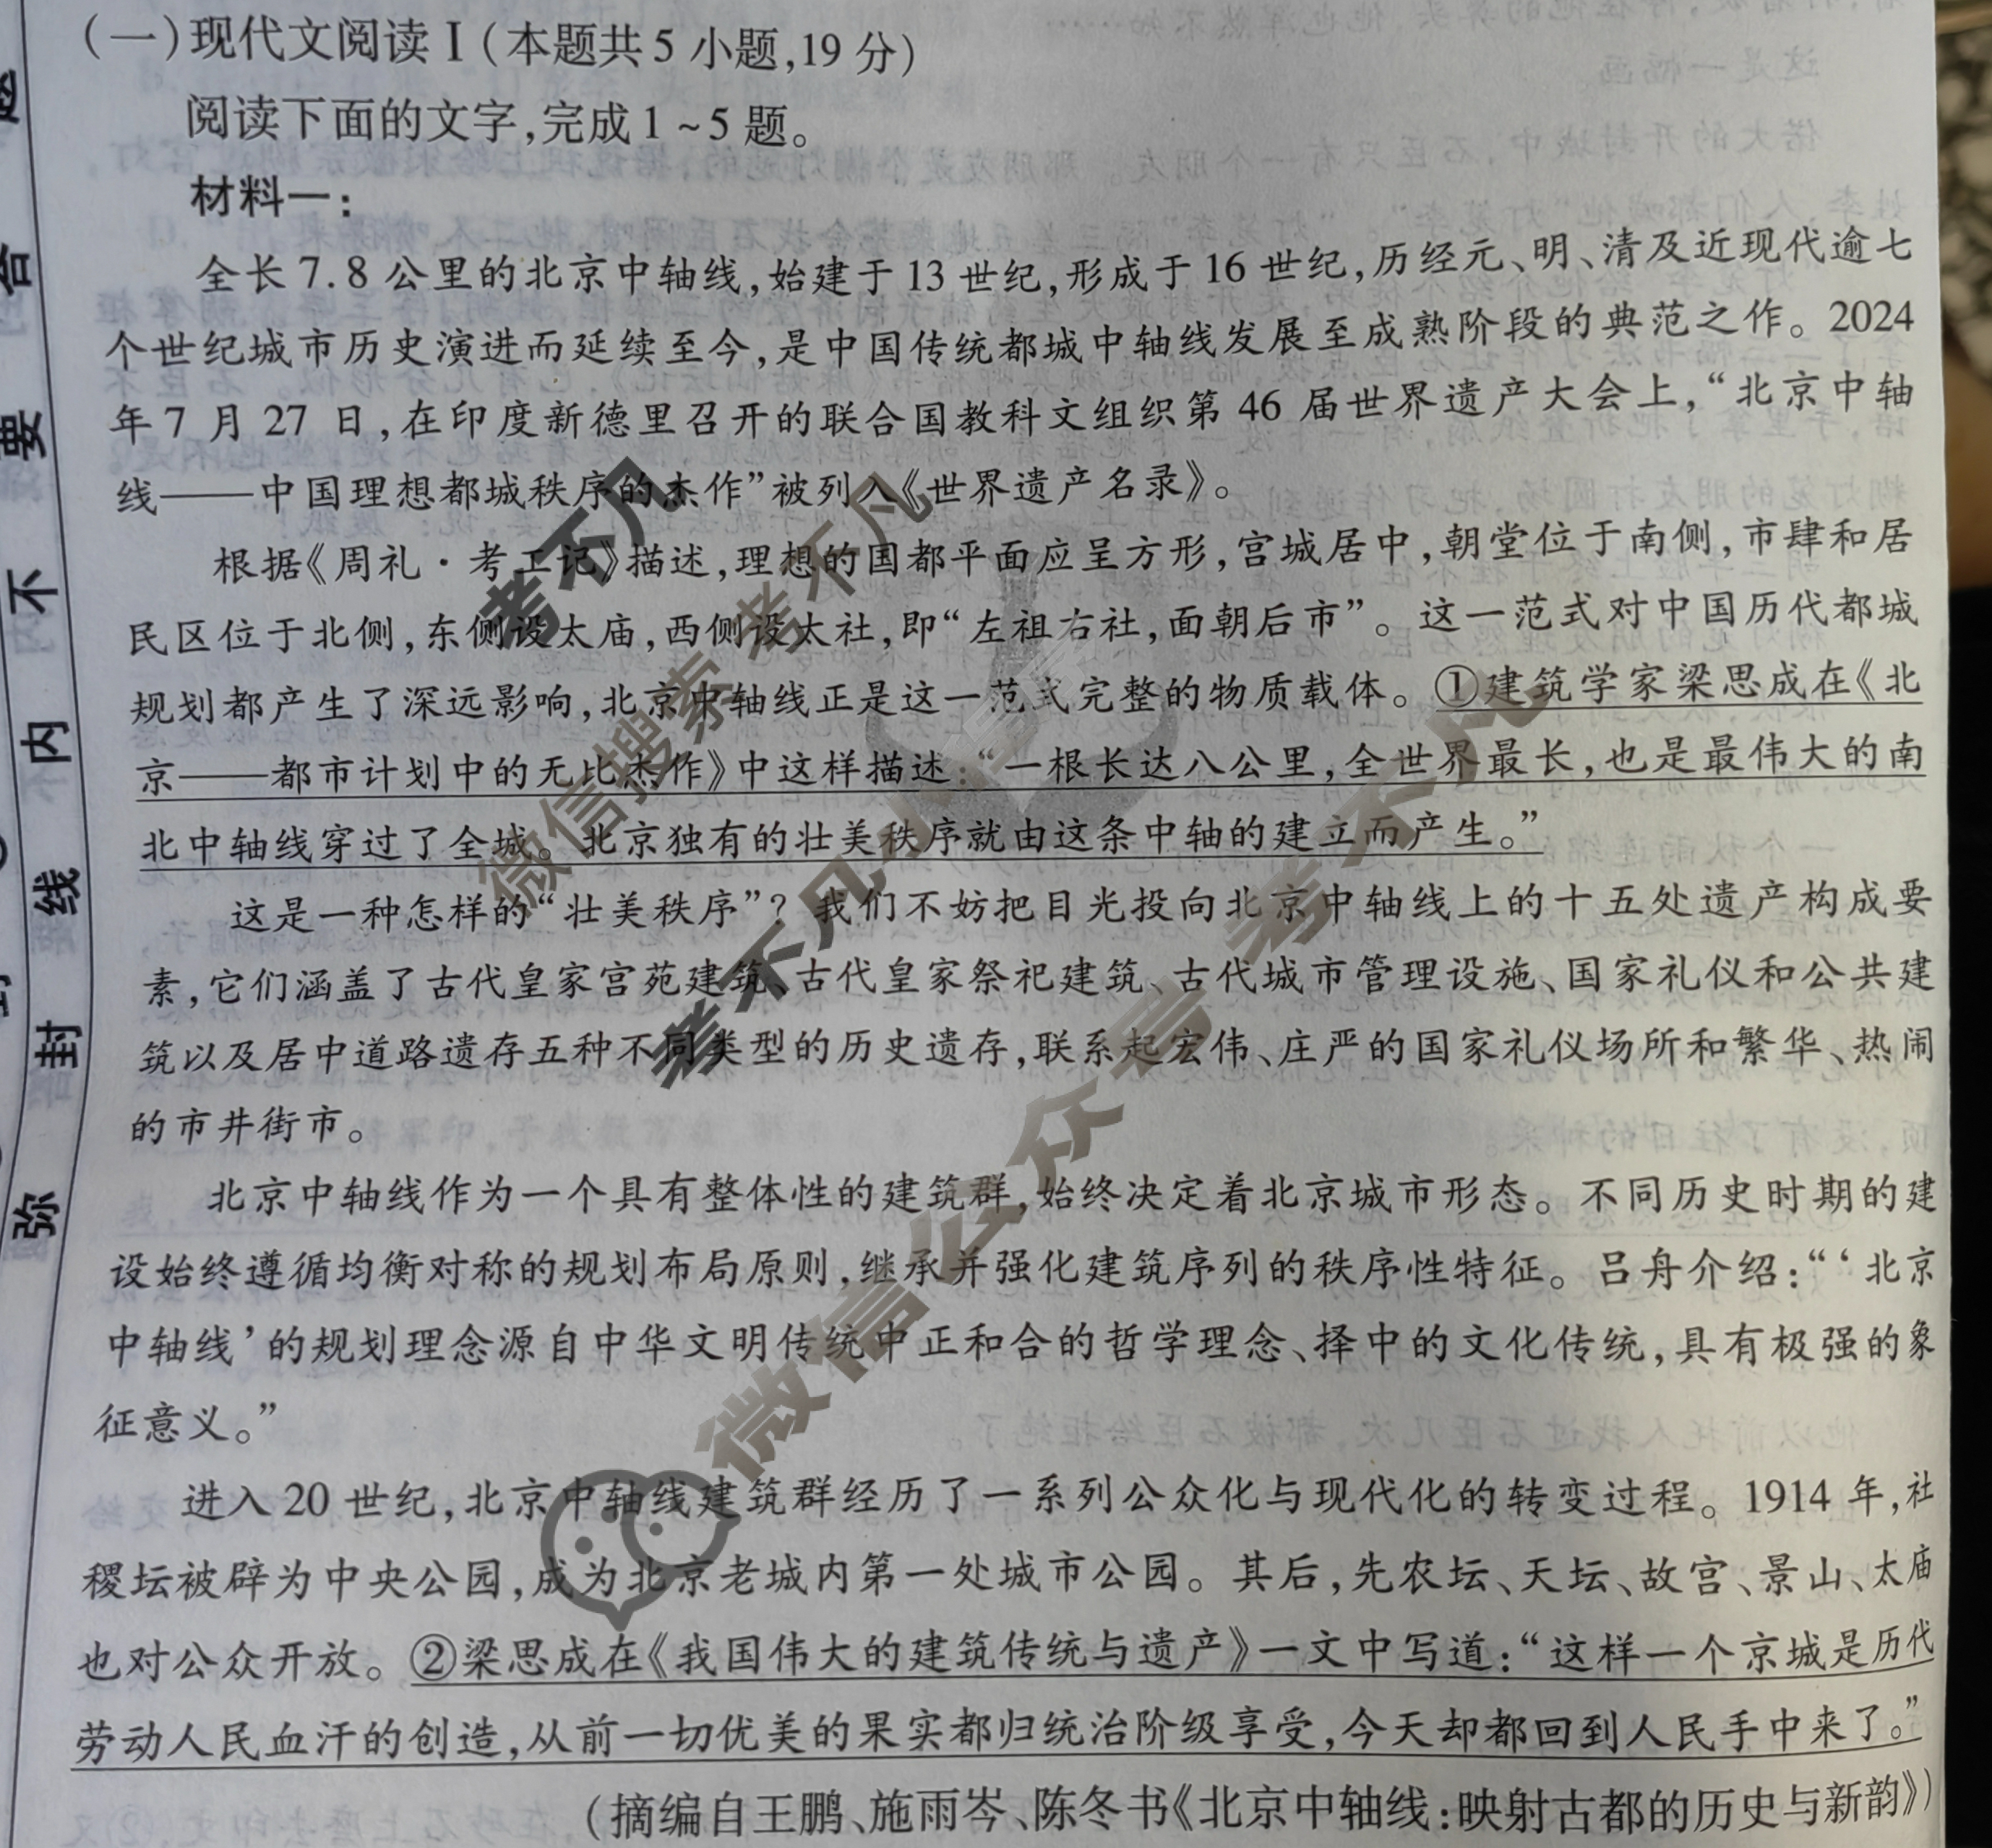 (一)现代文阅读Ⅰ(本题共5小题,19分)
阅读下面的文字,完成1~5题。
材料一:
全长7.8公里的北京中轴线,始建于13世纪,形成于16世纪,历经元、明、清及近现代逾七
个世纪城市历史演进而延续至今,是中国传统都城中轴线发展至成熟阶段的典范之作。2024
年7月27日,在印度新德里召开的联合国教科文组织第46届世界遗产大会上,“北京中轴
线——中国理想都城秩序的杰作”被列入《世界遗产名录》。
根据《周礼·考工记》描述,理想的国都平面应呈方形,宫城居中,朝堂位于南侧,市肆和居
民区位于北侧,东侧设太庙,西侧设太社,即“左祖右社,面朝后市”。这一范式对中国历代都城
规划都产生了深远影响,北京中轴线正是这一范式完整的物质载体。①建筑学家梁思成在《北
京——都市计划中的无比杰作》中这样描述:“一根长达八公里,全世界最长,也是最伟大的南
北中轴线穿过了全城。北京独有的壮美秩序就由这条中轴的建立而产生。”
这是一种怎样的“壮美秩序”?我们不妨把目光投向北京中轴线上的十五处遗产构成要
素,它们涵盖了古代皇家宫苑建筑、古代皇家祭祀建筑、古代城市管理设施、国家礼仪和公共建
筑以及居中道路遗存五种不同类型的历史遗存,联系起宏伟、庄严的国家礼仪场所和繁华、热闹
的市井街市。
北京中轴线作为一个具有整体性的建筑群,始终决定着北京城市形态。不同历史时期的建
设始终遵循均衡对称的规划布局原则,继承并强化建筑序列的秩序性特征。吕舟介绍:“‘北京
中轴线’的规划理念源自中华文明传统中正和合的哲学理念、择中的文化传统,具有极强的象
征意义。”
进入20世纪,北京中轴线建筑群经历了一系列公众化与现代化的转变过程。1914年,社
稷坛被辟为中央公园,成为北京老城内第一处城市公园。其后,先农坛、天坛、故宫、景山、太庙
也对公众开放。②梁思成在《我国伟大的建筑传统与遗产》一文中写道:“这样一个京城是历代
劳动人民血汗的创造,从前一切优美的果实都归统治阶级享受,今天却都回到人民手中来了。”
(摘编自王鹏、施雨岑、陈冬书《北京中轴线:映射古都的历史与新韵》)
答
要
不
内
线
封
弥
考不凡
微信搜索 考不凡
考不凡小程序
微信公众号 考不凡